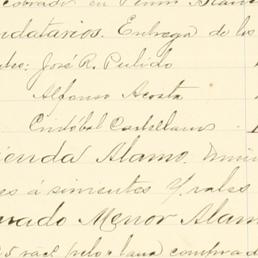 en Penin Blanc
ndatarios. Entrega de los
tre: José R. Pulido
Alfonso Acosta
Cristóbal Castellanos
ienda Alamo.
es á simientes
nado Menor Alam
5 racs pelo y lana compra d